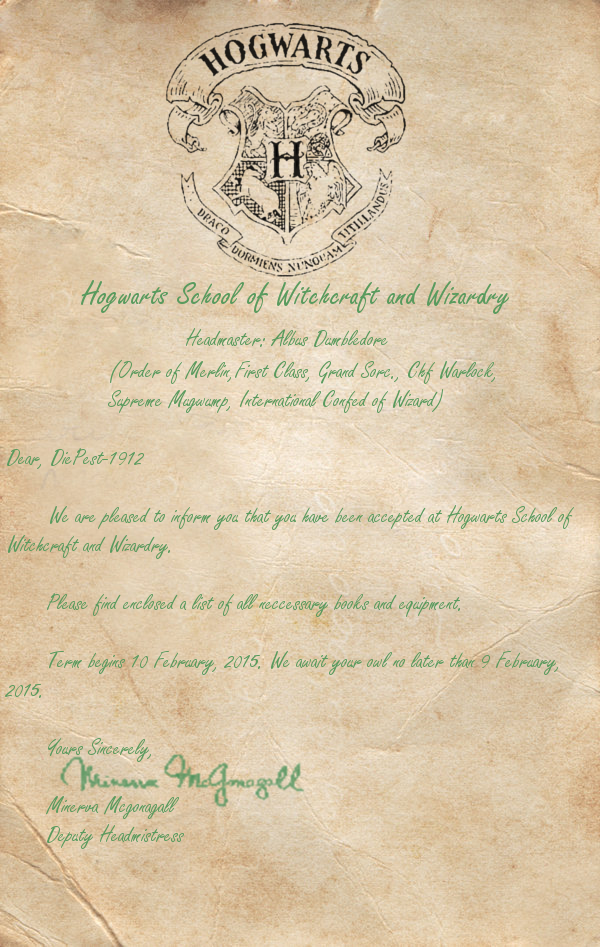 HOGWARTS
H
DRACO DORMIENS NUNQUAM TITILLANDUS
Hogwarts School of Witchcraft and Wizardry
Headmaster: Albus Dumbledore
(Order of Merlin, First Class, Grand Sorc., Chf Warlock,
Supreme Mugwump, International Confed of Wizard)
Dear, DiePest-1912
We are pleased to inform you that you have been accepted at Hogwarts School of
Witchcraft and Wizardry.
Please find enclosed a list of all neccessary books and equipment.
Term begins 10 February, 2015. We await your owl no later than 9 February,
2015.
Yours Sincerely,
Minerva McGonagall
Minerva Mcgonagall
Deputy Headmistress